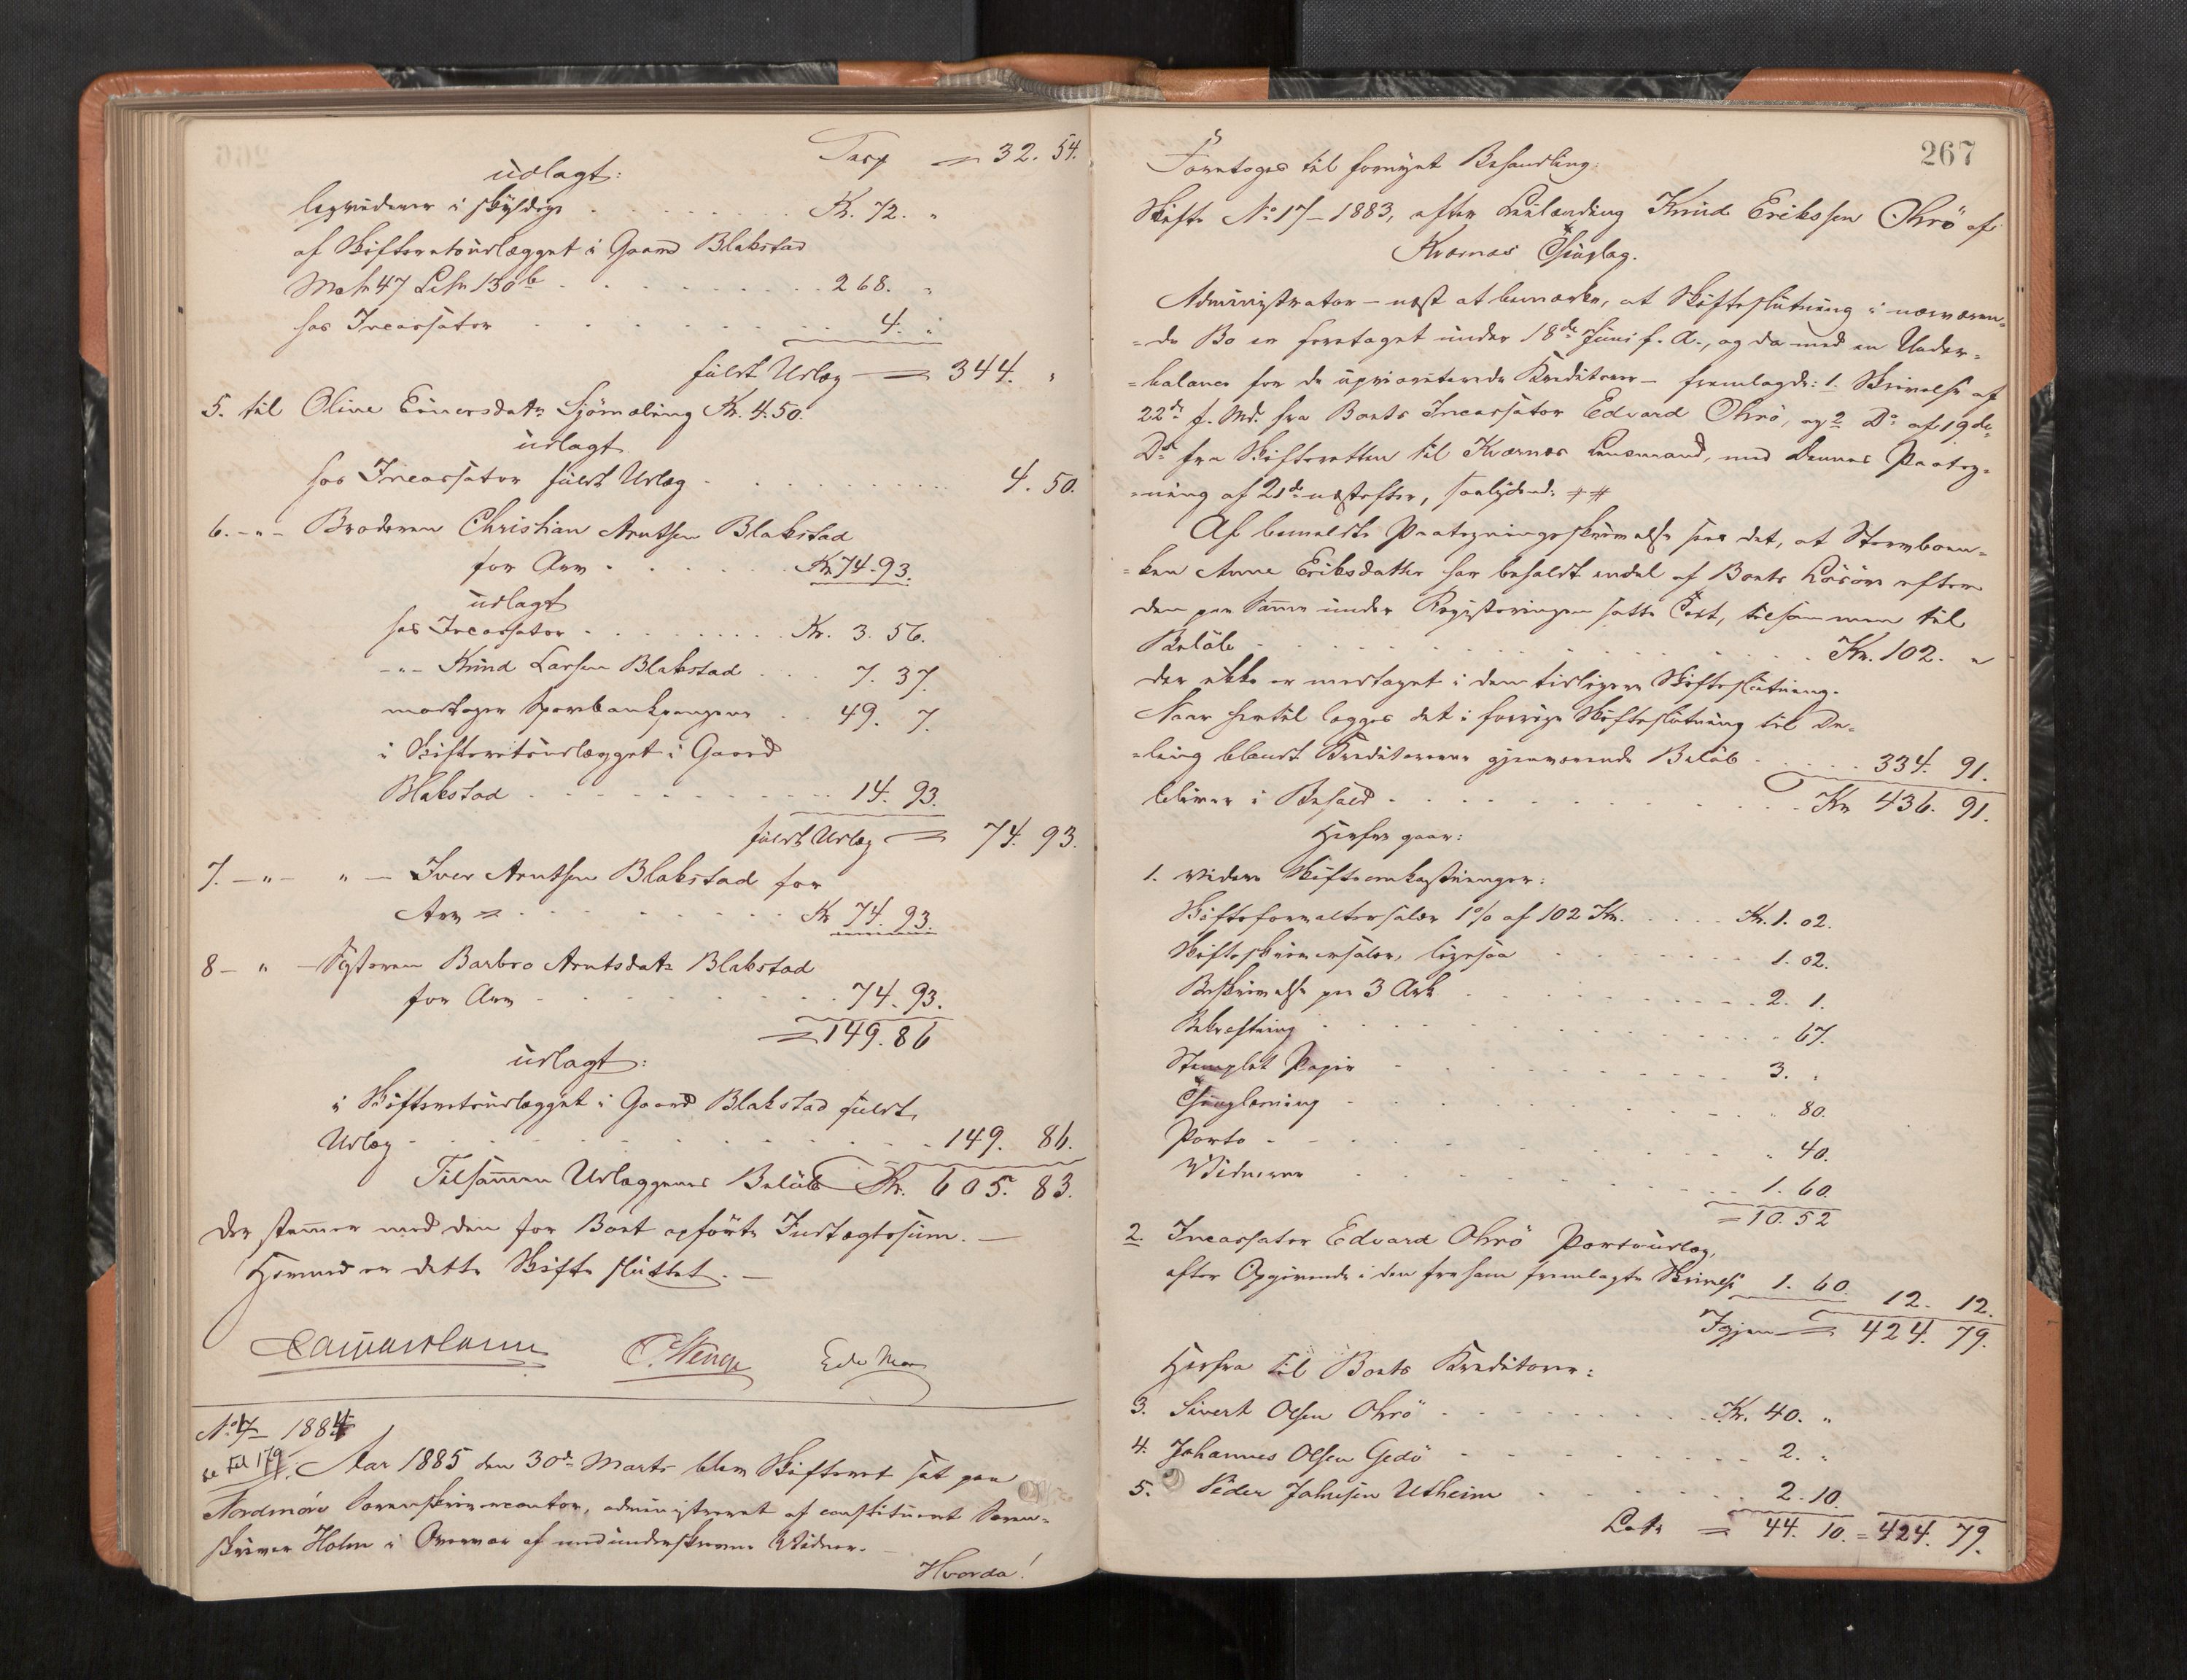 Transp = 32. 54.
udlagt:
Legvidener i skyldige Kr. 72. "
af Skifteretsudlægget i Gaard Blakstad
Mat№ 47 Løb№ 130b 268. "
hos Incassator 4. "
fuldt Udlæg = 344. "
5. til Oline Einersdatr Sjømæling Kr. 4.50.
udlagt
hos Incassator fuldt Udlæg 4. 50.
6. - " - Broderen Christian Arntsen Blakstad
for Arv Kr 74. 93.
udlagt
hos Incassator Kr. 3. 56.
- " - Knud Larsen Blakstad 7. 37.
modtagne Sparebankpengene 49. 7.
i Skifteretsudlægget i Gaard
Blakstad 14. 93.
fuldt Udlæg = 74. 93.
7. - " - " - Iver Arntsen Blakstad for
Arv = Kr 74. 93.
8 - " - Søsteren Barbro Arntsdatr Blakstad
for Arv 74. 93.
= 149. 86
udlagt:
i Skifteretsudlægget i Gaard Blakstad fuldt
Udlæg 149. 86.
Tilsammen Udlæggenes Beløb Kr. 605. 83.
der stemmer med den for Boet opførte Indtægtssum. —
Hermed er dette Skifte sluttet. —
C. Wenge Edv Moe
№ 7 - 1884
se Fol 179. Aar 1885 den 30de Marts blev Skifteret sat paa
Nordmøre Sorenskrivercontor, administreret af constitueret Soren-
skriver Holm i Overvær af medunderskrevne Vidner. —
Hvorda!
267
Foretoges til fornyet Behandling:
Skifte № 17 - 1883, efter Leilænding Knud Eriksen Ohrö af
Kværnæs Thinglag.
Administrator — næst at bemærke, at Skifteslutning i nærværen-
= de Bo er foretaget under 18de Juni f. A., og da med en Under-
= balance for de uprioriterede Kreditorer — fremlagde: 1. Skrivelse af
22de f. Md. fra Boets Incassator Edvard Ohrö, og 2 Do af 19de
Do fra Skifteretten til Kværnæs Lensmand, med Dennes Paateg-
= ning af 21de næstefter, saalydende: ≠ #
Af bemeldte Paategningsskrivelse sees det, at Stervboen-
= ken Anne Eriksdatter har beholdt endel af Boets Løsøre efter
den paa Samme under Registreringen satte Taxt, tilsammen til
Beløb Kr. 102. "
der ikke er medtaget i den tidligere Skifteslutning.
Naar hertil lægges det i forrige Skifteslutning til De-
= ling blandt Kreditorerne gjenværende Beløb 334. 91.
bliver i Behold Kr 436. 91.
Herfra gaar:
1. videre Skifteomkostninger:
Skifteforvaltersalær 1% af 102 Kr. Kr. 1. 02.
Skifteskriversalær, ligesaa 1. 02.
Beskrivelse paa 3 Ark 2. 1.
Bekræftning " 67.
Stemplet Papir 3. "
Thinglæsning " 80.
Porto " 40.
Vidnerne 1. 60.
= 10. 52
2. Incassator Edvard Ohrö Portoudlæg,
efter Opgivende i den fra ham fremlagte Skrivelse 1. 60. 12. 12.
Igjen = 424. 79.
Herfra til Boets Kreditorer:
3. Sivert Olsen Ohrö Kr. 40. "
4. Johannes Olsen Gedö 2. "
5. Peder Johnsen Utheim 2. 10.
Lats = 44. 10. = 424. 79.